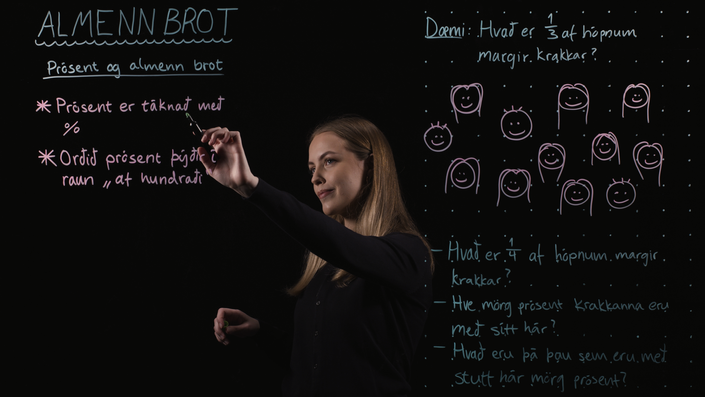 ALMENN BROT
Prósent og almenn brot
* Prósent er táknað með
%
* Orðið prósent þýðir í
raun „af hundraði
Dæmi: Hvað er 1/3 af hópnum
margir krakkar?
– Hvað er 1/4 af hópnum margir
krakkar?
– Hve mörg prósent krakkanna eru
með sítt hár?
– Hvað eru þá þau sem eru með
stutt hár mörg prósent?